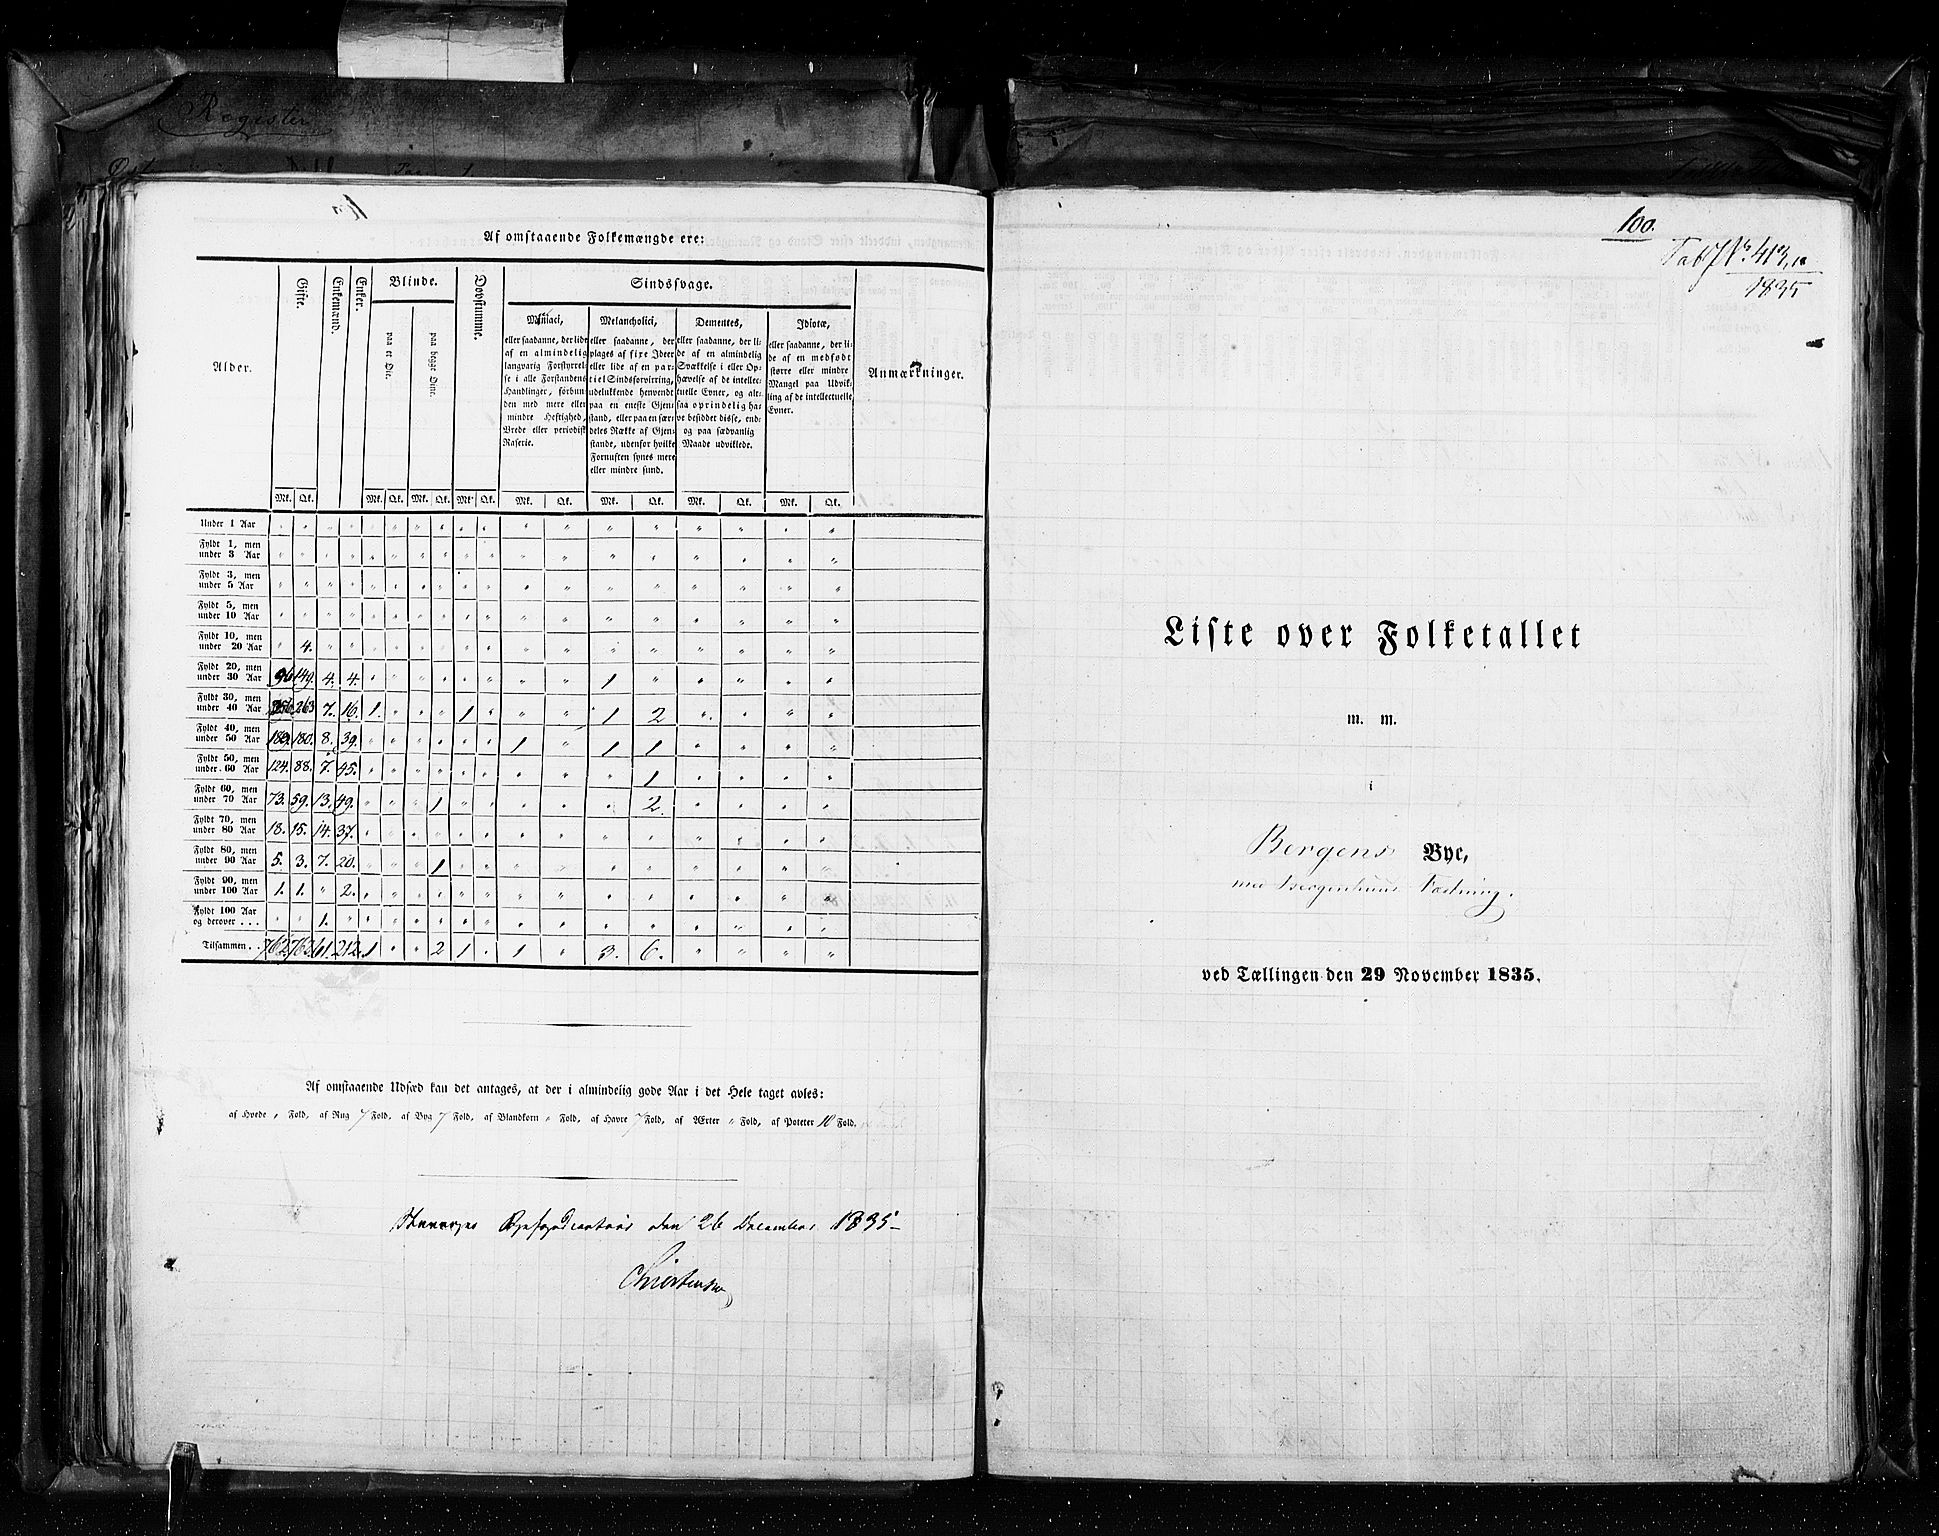 Register
Af omstaaende Folkemængde ere:
Alder. Gifte. Enkemænd. Enker. Blinde. Døvstumme. Sindssvage. Anmærkninger.
paa et Øie. paa begge Øine.
Maniaci, eller saadanne, der lide af en almindelig langvarig Forstyrrelse i alle Forstandens Handlinger, forbunden med mere eller mindre Heftighed, Vrede eller periodisk Raserie.
Melancholici, eller saadanne, der plages af fixe Ideer eller lide af en partiel Sindsforvirring, udelukkende henvendt paa en eneste Gjenstand, eller paa en særdeles Række af Gjenstande, udenfor hvilke Fornuften synes mere eller mindre sund.
Dementes, eller saadanne, der lide af en almindelig Svækkelse i eller Ophævelse af de intellectuelle Evner, og altsaa oprindelig have besiddet disse, endog paa sædvanlig Maade udviklede.
Idiotæ, eller saadanne, der lide af en medfødt større eller mindre Mangel paa Udvikling af de intellectuelle Evner.
Mk. Qk. Mk. Qk. Mk. Qk. Mk. Qk. Mk. Qk. Mk. Qk. Mk. Qk. Mk. Qk.
Under 1 Aar " " " " " " " " " " " " " " " " " "
Fyldt 1, men under 3 Aar " " " " " " " " " " " " " " " " " "
Fyldt 3, men under 5 Aar " " " " " " " " " " " " " " " " " "
Fyldt 5, men under 10 Aar " " " " " " " " " " " " " " " " " "
Fyldt 10, men under 20 Aar " 4. " " " " " " " " " " " " " " " "
Fyldt 20, men under 30 Aar 96 149. 4. 4. " " " " " " " " 1 " " " " "
Fyldt 30, men under 40 Aar 263 7. 16. 1. " " " 1 " " " 1 2 " " " "
Fyldt 40, men under 50 Aar 189. 180. 8. 39. " " " " " " 1 " 1 1 " " " "
Fyldt 50, men under 60 Aar 124. 88. 7. 45. " " " " " " " " " 1 " " " "
Fyldt 60, men under 70 Aar 73. 59. 13. 49. " " " 1 " " " " " 2 " " " "
Fyldt 70, men under 80 Aar 18. 15. 14. 37. " " " " " " " " " " " " " "
Fyldt 80, men under 90 Aar 5. 3. 7. 20. " " " 1 " " " " " " " " " "
Fyldt 90, men under 100 Aar 1. 1. " 2. " " " " " " " " " " " " " "
Fyldt 100 Aar og derover . . . " " 1. " " " " " " " " " " " " " " "
Tilsammen . . 762. 763. 61. 212. 1 " " 2 1 " 1 " 3. 6. " " " "
Af omstaaende Udsæd kan det antages, at der i almindelig gode Aar i det Hele taget avles:
af Hvede " Fold, af Rug 7 Fold, af Byg 7 Fold, af Blandkorn " Fold, af Havre 7 Fold, af Ærter " Fold, af Poteter 10 Fold.
Stavanger Byefogdcontoir den 26 December 1835
Christensen
100.
Tab. No 413, a
1835
Liste over Folketallet
m. m.
i
Bergens Bye,
med Bergenhuus Fæstning.
ved Tællingen den 29 November 1835.